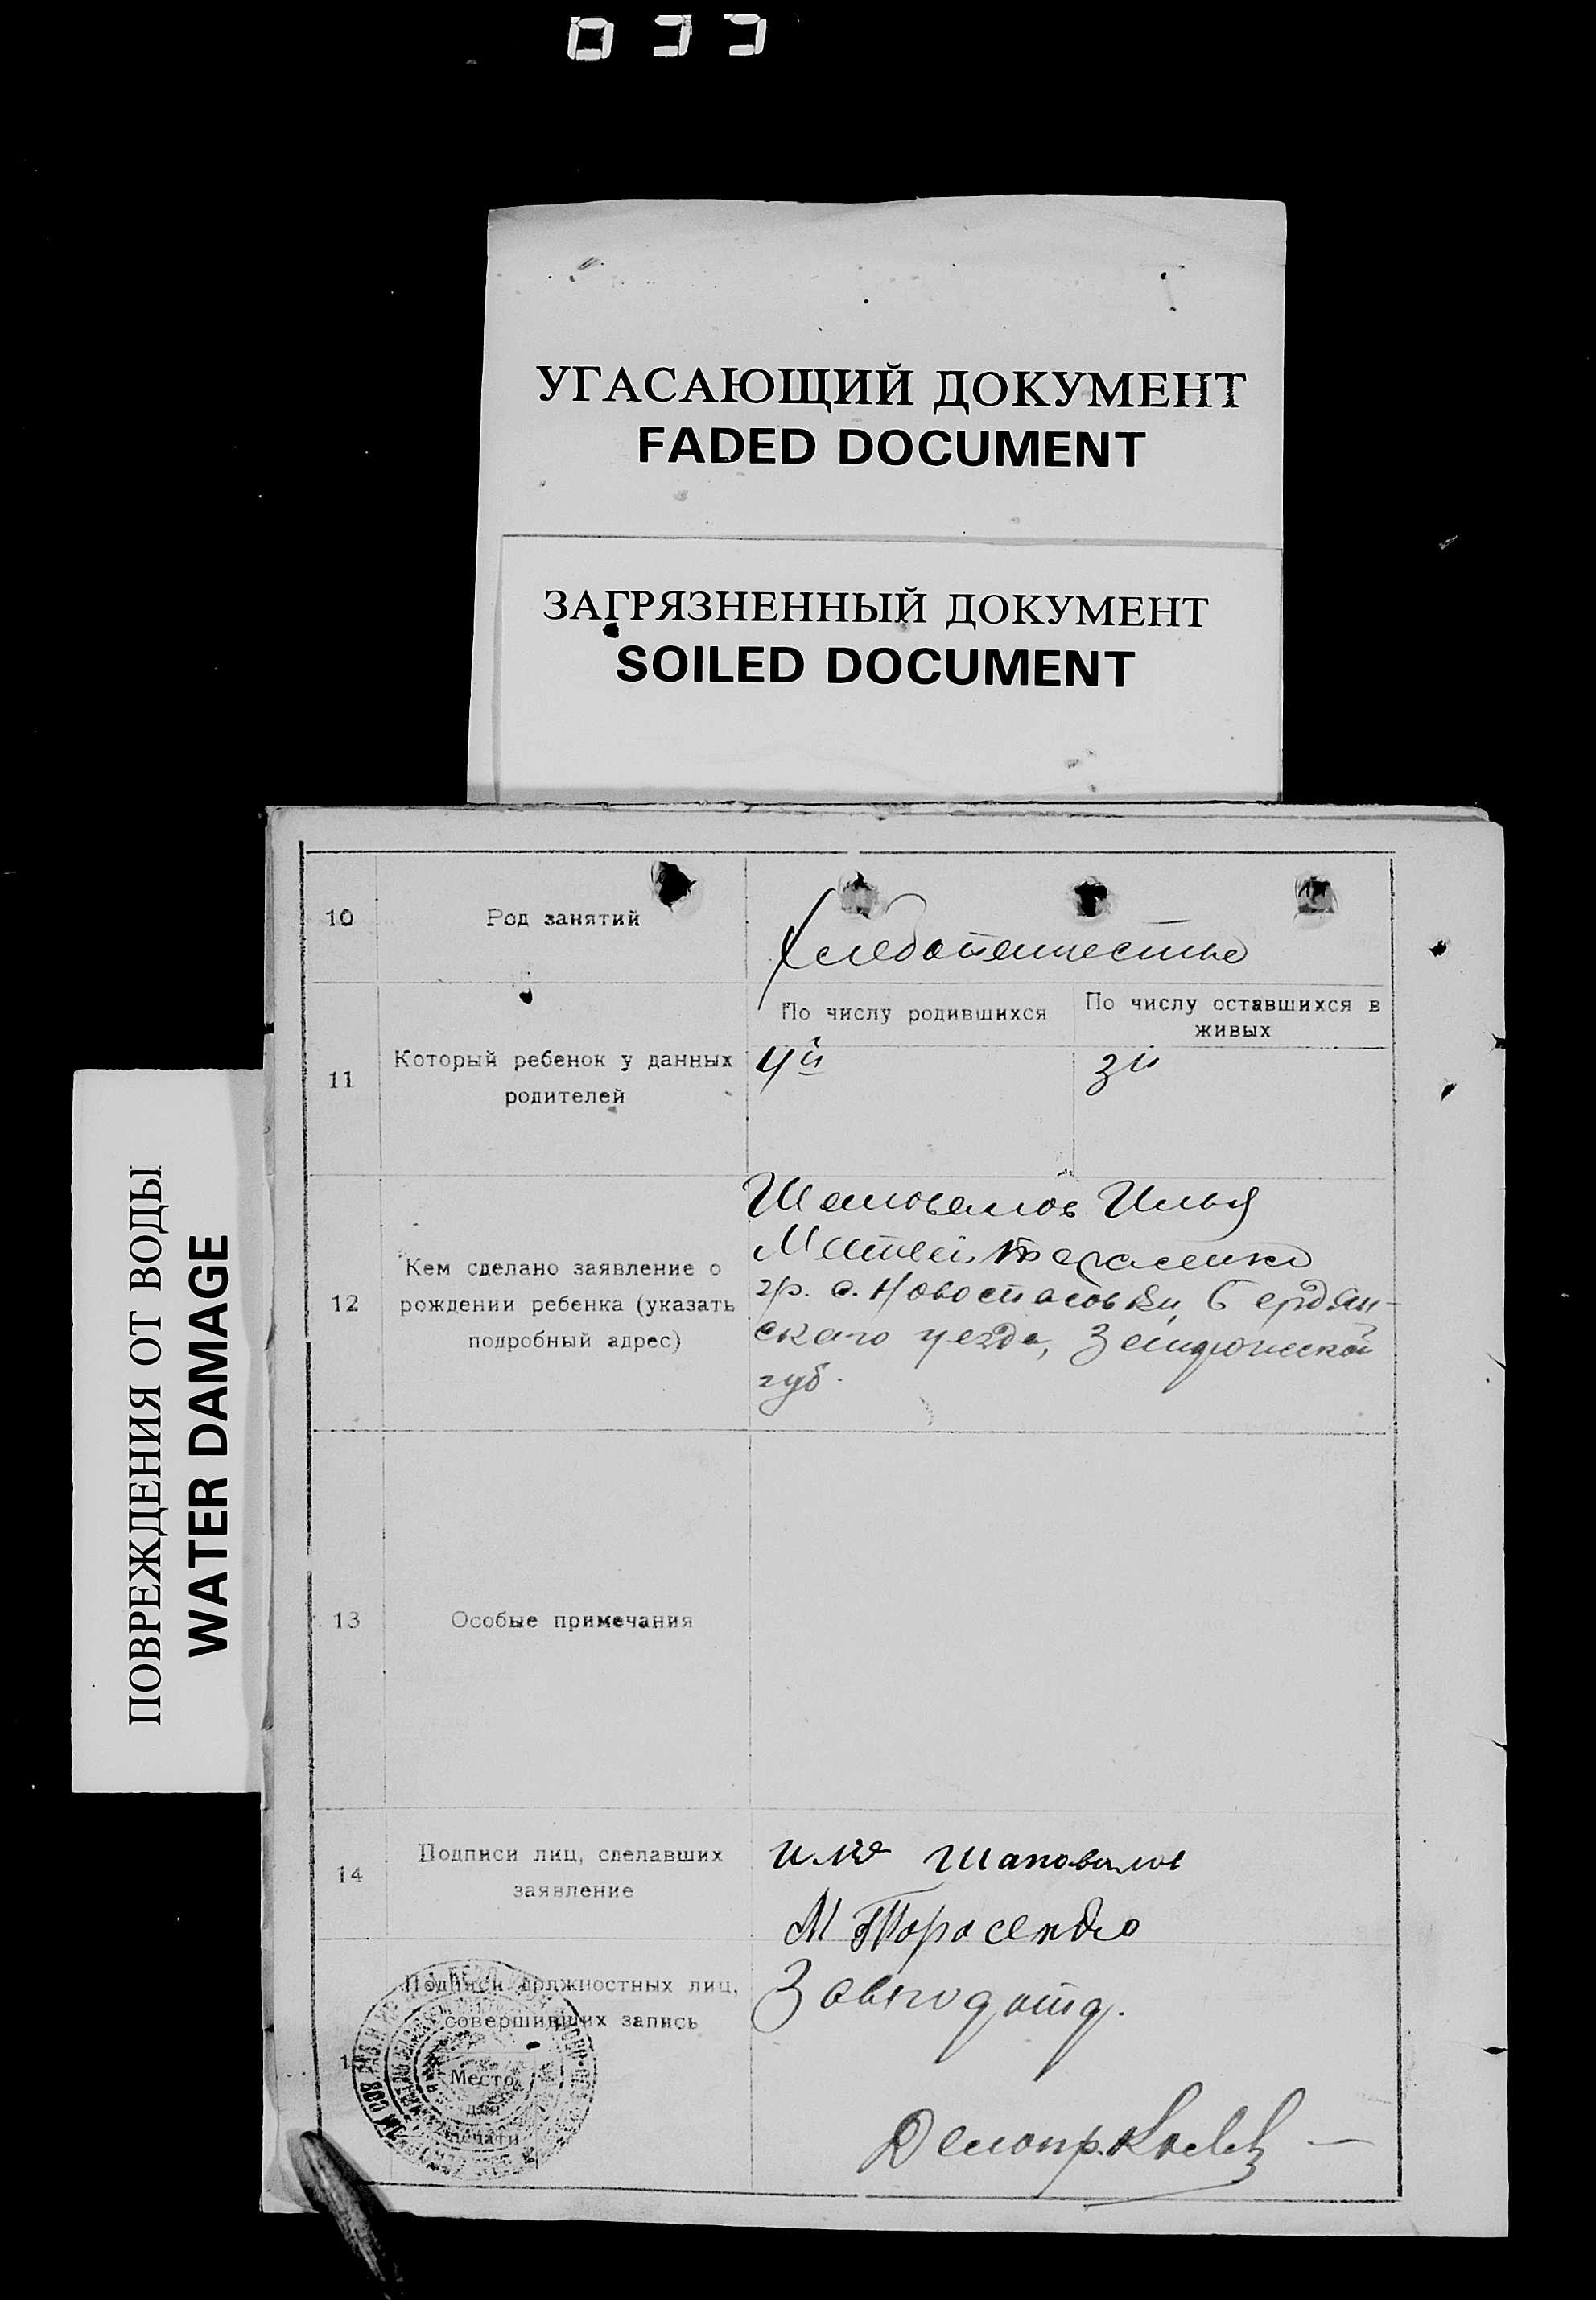 УГАСАЮЩИЙ ДОКУМЕНТ
FADED DOCUMENT
ЗАГРЯЗНЕННЫЙ ДОКУМЕНТ
SOILED DOCUMENT
ПОВРЕЖДЕНИЯ ОТ ВОДЫ
WATER DAMAGE
10
Род занятий
Хлебопашество
11
Который ребенок у данных
родителей
По числу родившихся
4й
По числу оставшихся в
живых
3й
12
Кем сделано заявление о
рождении ребенка (указать
подробный адрес)
Шаповалов Илья
Матвей Тарасенко
гр. с. Новоспасовки, Бердян-
ского уезда, Запорожской
губ.
13
Особые примечания
14
Подписи лиц, сделавших
заявление
Шаповалов
М Тарасенко
Подписи должностных лиц,
совершивших запись
Место
для
печати
Завподотд.
Делопр.